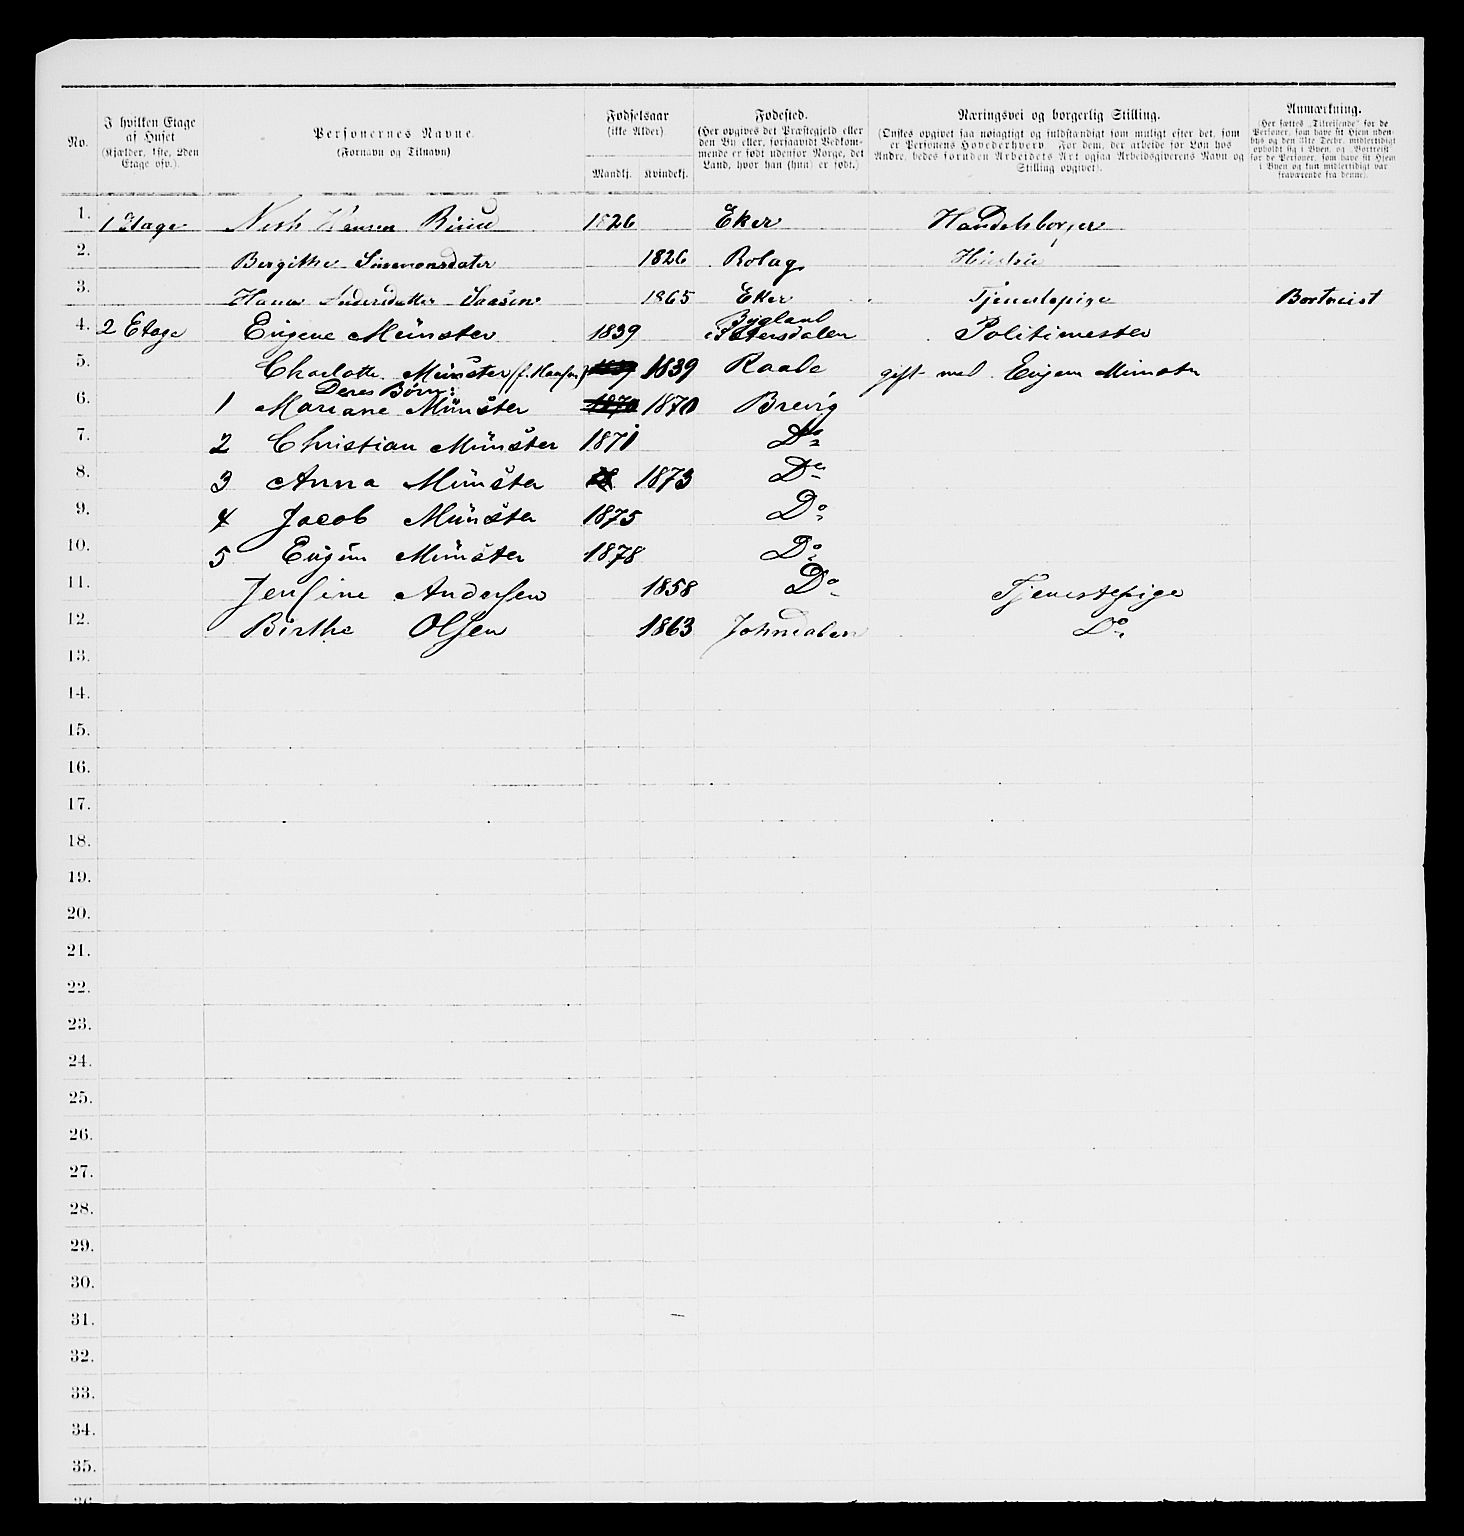 No.
I hvilken Etage af Huset (Kjælder, 1ste, 2den Etage osv.).
Personernes Navne. (Fornavn og Tilnavn)
Fødselsaar (ikke Alder) Mandkj. Kvindekj.
Fødested. (Her opgives det Præstegjeld eller den By eller, forsaavidt Vedkommende er født udenfor Norge, det Land, hvor han (hun) er født.)
Næringsvei og borgerlig Stilling. (Ønskes opgivet saa nøiagtigt og fuldstændigt som muligt efter det, som er Personens Hovederhverv. For dem, der arbeide for Løn hos Andre, bedes foruden Arbeidets Art ogsaa Arbeidsgiverens Navn og Stilling opgivet).
Anmærkning. (Her sættes „Tilreisende" for de Personer, som have sit Hjem udenbys og den 31te Decbr. midlertidigt opholdt sig i Byen, og „Bortreist" for de Personer, som have sit Hjem i Byen og kun midlertidigt var fraværende fra denne).
1. 1 Etage Hansen 1826 Eker Handelsborger
2. Bergithe Simmonsdater 1826 Rolag Hustru
3. Hana Andersdatter 1865 Eker Tjenestepige Bortreist
4. 2 Etage Eugene Münster 1839 Bygland i Sætersdalen Politimester
5. Charlotte Münster 1839 Raade gift med Eugen Münster
Deres Børn:
6. 1 Mariane Münster 1870 1870 Brevig
7. 2 Christian Münster 1871 Do
8. 3 Anna Münster 18 1873 Do
9. 4 Jacob Münster 1875 Do
10. 5 Eugén Münster 1878 Do
11. Jensine Andersen 1858 Do Tjenestepige
12. Birthe Olsen 1863 Do
13.
14.
15.
16.
17.
18.
19.
20.
21.
22.
23.
24.
25.
26.
27.
28.
29.
30.
31.
32.
33.
34.
35.